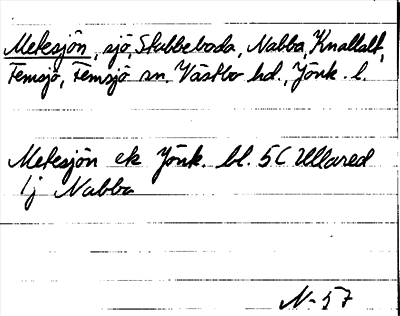 Metesjön, sjö, Stubbeboda, Nabba, Knallalt,
Femsjö, Femsjö sn, Västbo hd., Jönk. l.
Metesjön ek Jönk. bl. 5C Ullared
1j Nabba
N-57